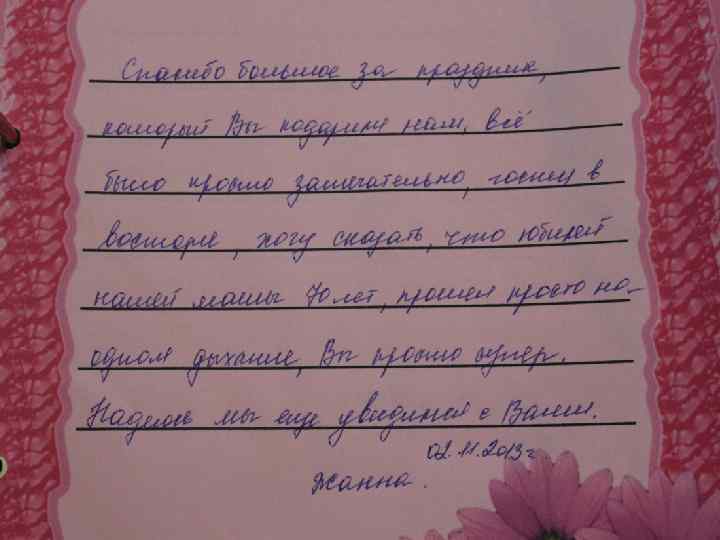 Спасибо большое за праздник,
который Вы подарили нам. Всё
было просто замечательно, гости в
восторге, хочу сказать, что юбилей
нашей мамы 70 лет, прошел просто на
одном дыхание, Вы просто супер.
Надеюсь мы еще увидимся с Вами.
02.11.2013г
Жанна.